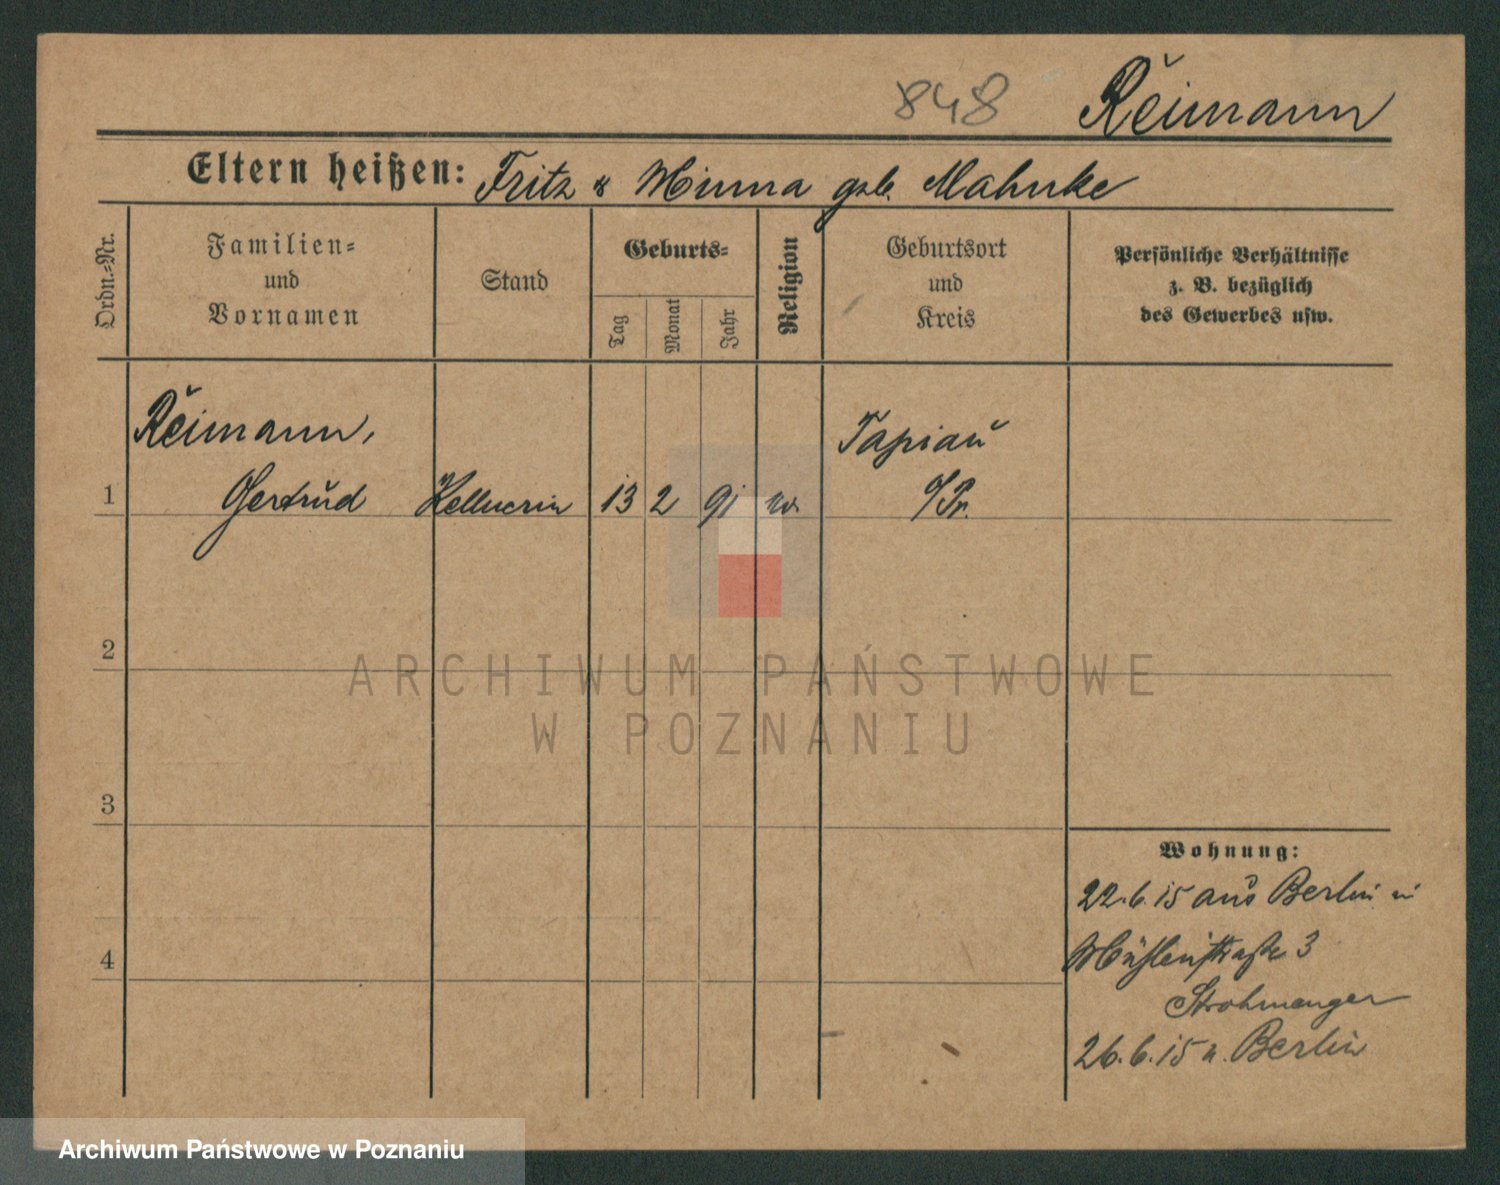 848 Reimann
Eltern heißen: Fritz & Minna geb. Mahnke
Ordn.=Nr.
Familien=
und
Vornamen
Stand
Geburts=
Tag
Monat
Jahr
Religion
Geburtsort
und
Kreis
Persönliche Verhältnisse
z. B. bezüglich
des Gewerbes usw.
Reimann,
Tapiau
1 Gertrud Kellnerin 13 2 91 o/Pr.
2
ARCHIWUM PAŃSTWOWE
W POZNANIU
3
Wohnung:
22.6.15 aus Berlin
Mühlenstraße 3
4
Strohmenger
26.6.15 n. Berlin
Archiwum Państwowe w Poznaniu